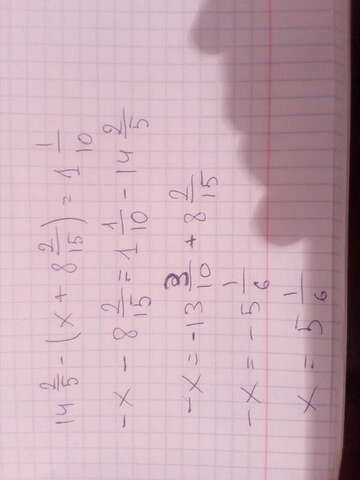 14 2/5 - (x + 8 2/15) = 1 1/10
-x - 8 2/15 = 1 1/10 - 14 2/5
-x = -13 3/10 + 8 2/15
-x = -5 1/6
x = 5 1/6